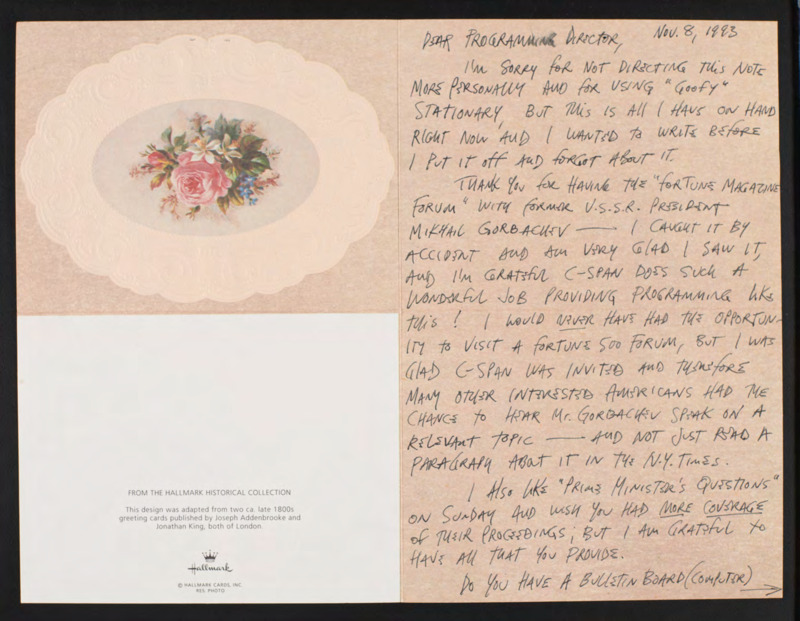 FROM THE HALLMARK HISTORICAL COLLECTION
This design was adapted from two ca. late 1800s
greeting cards published by Joseph Addenbrooke and
Jonathan King, both of London.
Hallmark
© HALLMARK CARDS, INC.
RES. PHOTO
DEAR PROGRAMMING DIRECTOR, NOV. 8, 1993
I'M SORRY FOR NOT DIRECTING THIS NOTE
MORE PERSONALLY AND FOR USING "GOOFY"
STATIONARY, BUT THIS IS ALL I HAVE ON HAND
RIGHT NOW AND I WANTED TO WRITE BEFORE
I PUT IT OFF AND FORGOT ABOUT IT.
THANK YOU FOR HAVING THE "FORTUNE MAGAZINE
FORUM" WITH FORMER U.S.S.R. PRESIDENT
MIKHAIL GORBACHEV — I CAUGHT IT BY
ACCIDENT AND AM VERY GLAD I SAW IT,
AND I'M GRATEFUL C-SPAN DOES SUCH A
WONDERFUL JOB PROVIDING PROGRAMMING LIKE
THIS! I WOULD NEVER HAVE HAD THE OPPORTUN-
ITY TO VISIT A FORTUNE 500 FORUM, BUT I WAS
GLAD C-SPAN WAS INVITED AND THEREFORE
MANY OTHER INTERESTED AMERICANS HAD THE
CHANCE TO HEAR MR. GORBACHEV SPEAK ON A
RELEVANT TOPIC — AND NOT JUST READ A
PARAGRAPH ABOUT IT IN THE N.Y. TIMES.
I ALSO LIKE "PRIME MINISTER'S QUESTIONS"
ON SUNDAY AND WISH YOU HAD MORE COVERAGE
OF THEIR PROCEEDINGS; BUT I AM GRATEFUL TO
HAVE ALL THAT YOU PROVIDE.
DO YOU HAVE A BULLETIN BOARD (COMPUTER) →